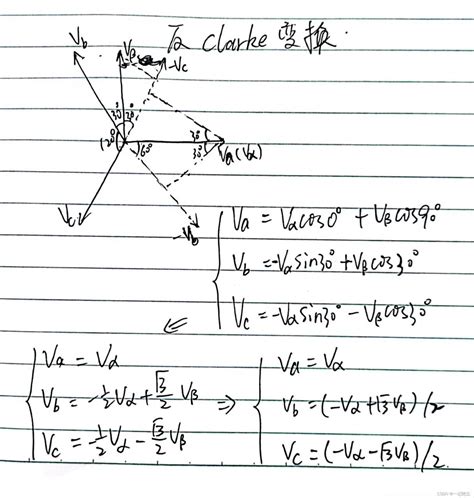 反 Clarke 变换.
Vb Vβ -Vc
30° 30°
120° 60° 30° 30° Va(Vα)
Vc -Vb
Va = Vα cos0° + Vβ cos90°
Vb = -Vα sin30° + Vβ cos30°
Vc = -Vα sin30° - Vβ cos30°
⇙
Va = Vα
Vb = -½Vα + √3/2 Vβ
Vc = -½Vα - √3/2 Vβ
⇒
Va = Vα
Vb = (-Vα + √3Vβ)/2
Vc = (-Vα - √3Vβ)/2